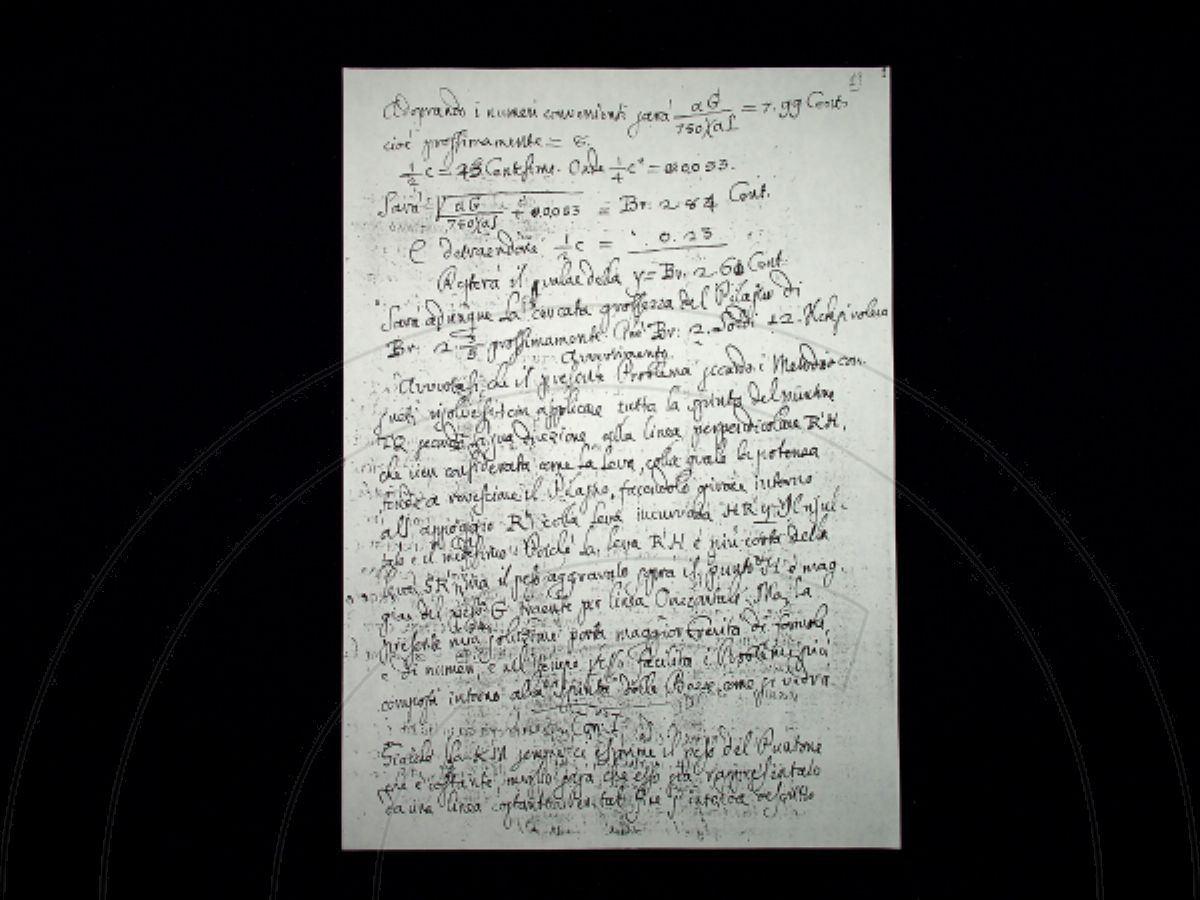 19
Adoprando i numeri convenienti sarà aG/750)(aS = 7.99 Cent.
cioè prossimamente = 8.
1/2 c = 23 Centesime. Onde 1/4 c² = 0.053.
Sarà √ aG/750)(aS + 0.053 = Br. 2.84 Cent.
E detraendone 1/2 c = 0.23
Resterà il valore della y = Br. 2.61 Cent.
Sarà adunque la cercata grossezza del Pilastro di
Br. 2 3/5 prossimamente. Cioè Br: 2. Soldi 12.
Avvertimento.
Avvertasi, che il presente Problema secondo i Metodi con
quali risolvesi con applicare tutta la spinta del puntone
secondo la sua direzione alla linea perpendicolare RH,
che vien considerata come la Leva, colla quale la potenza
tende a rovesciare il Pilastro, facendolo girare intorno
all'appoggio R colla Leva incurvata HRy. Il risul-
tato è il medesimo. Perchè la leva RH è più corta della
leva SR, ma il peso aggravato sopra il punto H è mag-
giore del peso G traente per linea Orizzontale. Ma la
presente mia soluzione porta maggior brevità di formule,
e di numeri, e nell'istesso tempo facilita i Problemi più
composti intorno alla spinta delle Bozze, come si vedrà
Giacchè la KM sempre ci esprime il peso del Puntone
che è costante, meglio sarà, che esso sia rappresentato
da una linea costante